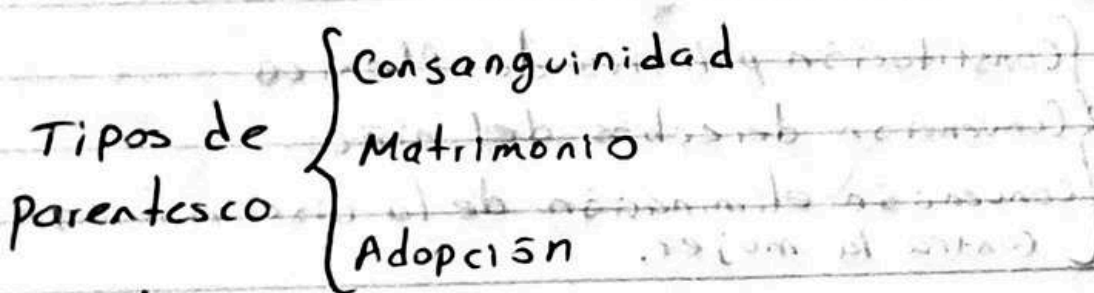 Tipos de
parentesco
Consanguinidad
Matrimonio
Adopción